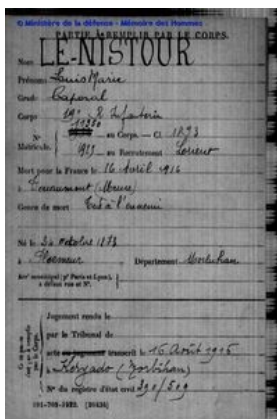 © Ministère de la défense - Mémoire des Hommes
PARTIE À REMPLIR PAR LE CORPS.
Nom LE-NISTOUR
Prénoms Louis Marie
Grade Caporal
Corps 19e R. Infanterie
N° 11380 au Corps. — Cl. 1893
Matricule. 1913 au Recrutement Lorient
Mort pour la France le 16 Avril 1916
à Douaumont (Meuse)
Genre de mort Tué à l'ennemi
Né le 3 Octobre 1873
à Département Morbihan
Arr' municipal (p' Paris et Lyon),
à défaut rue et N°.
Jugement rendu le
par le Tribunal de
acte ou jugement transcrit le 16 Août 1916
à Kergado (Morbihan)
N° du registre d'état civil 390/509
101-708-1922. [26434]